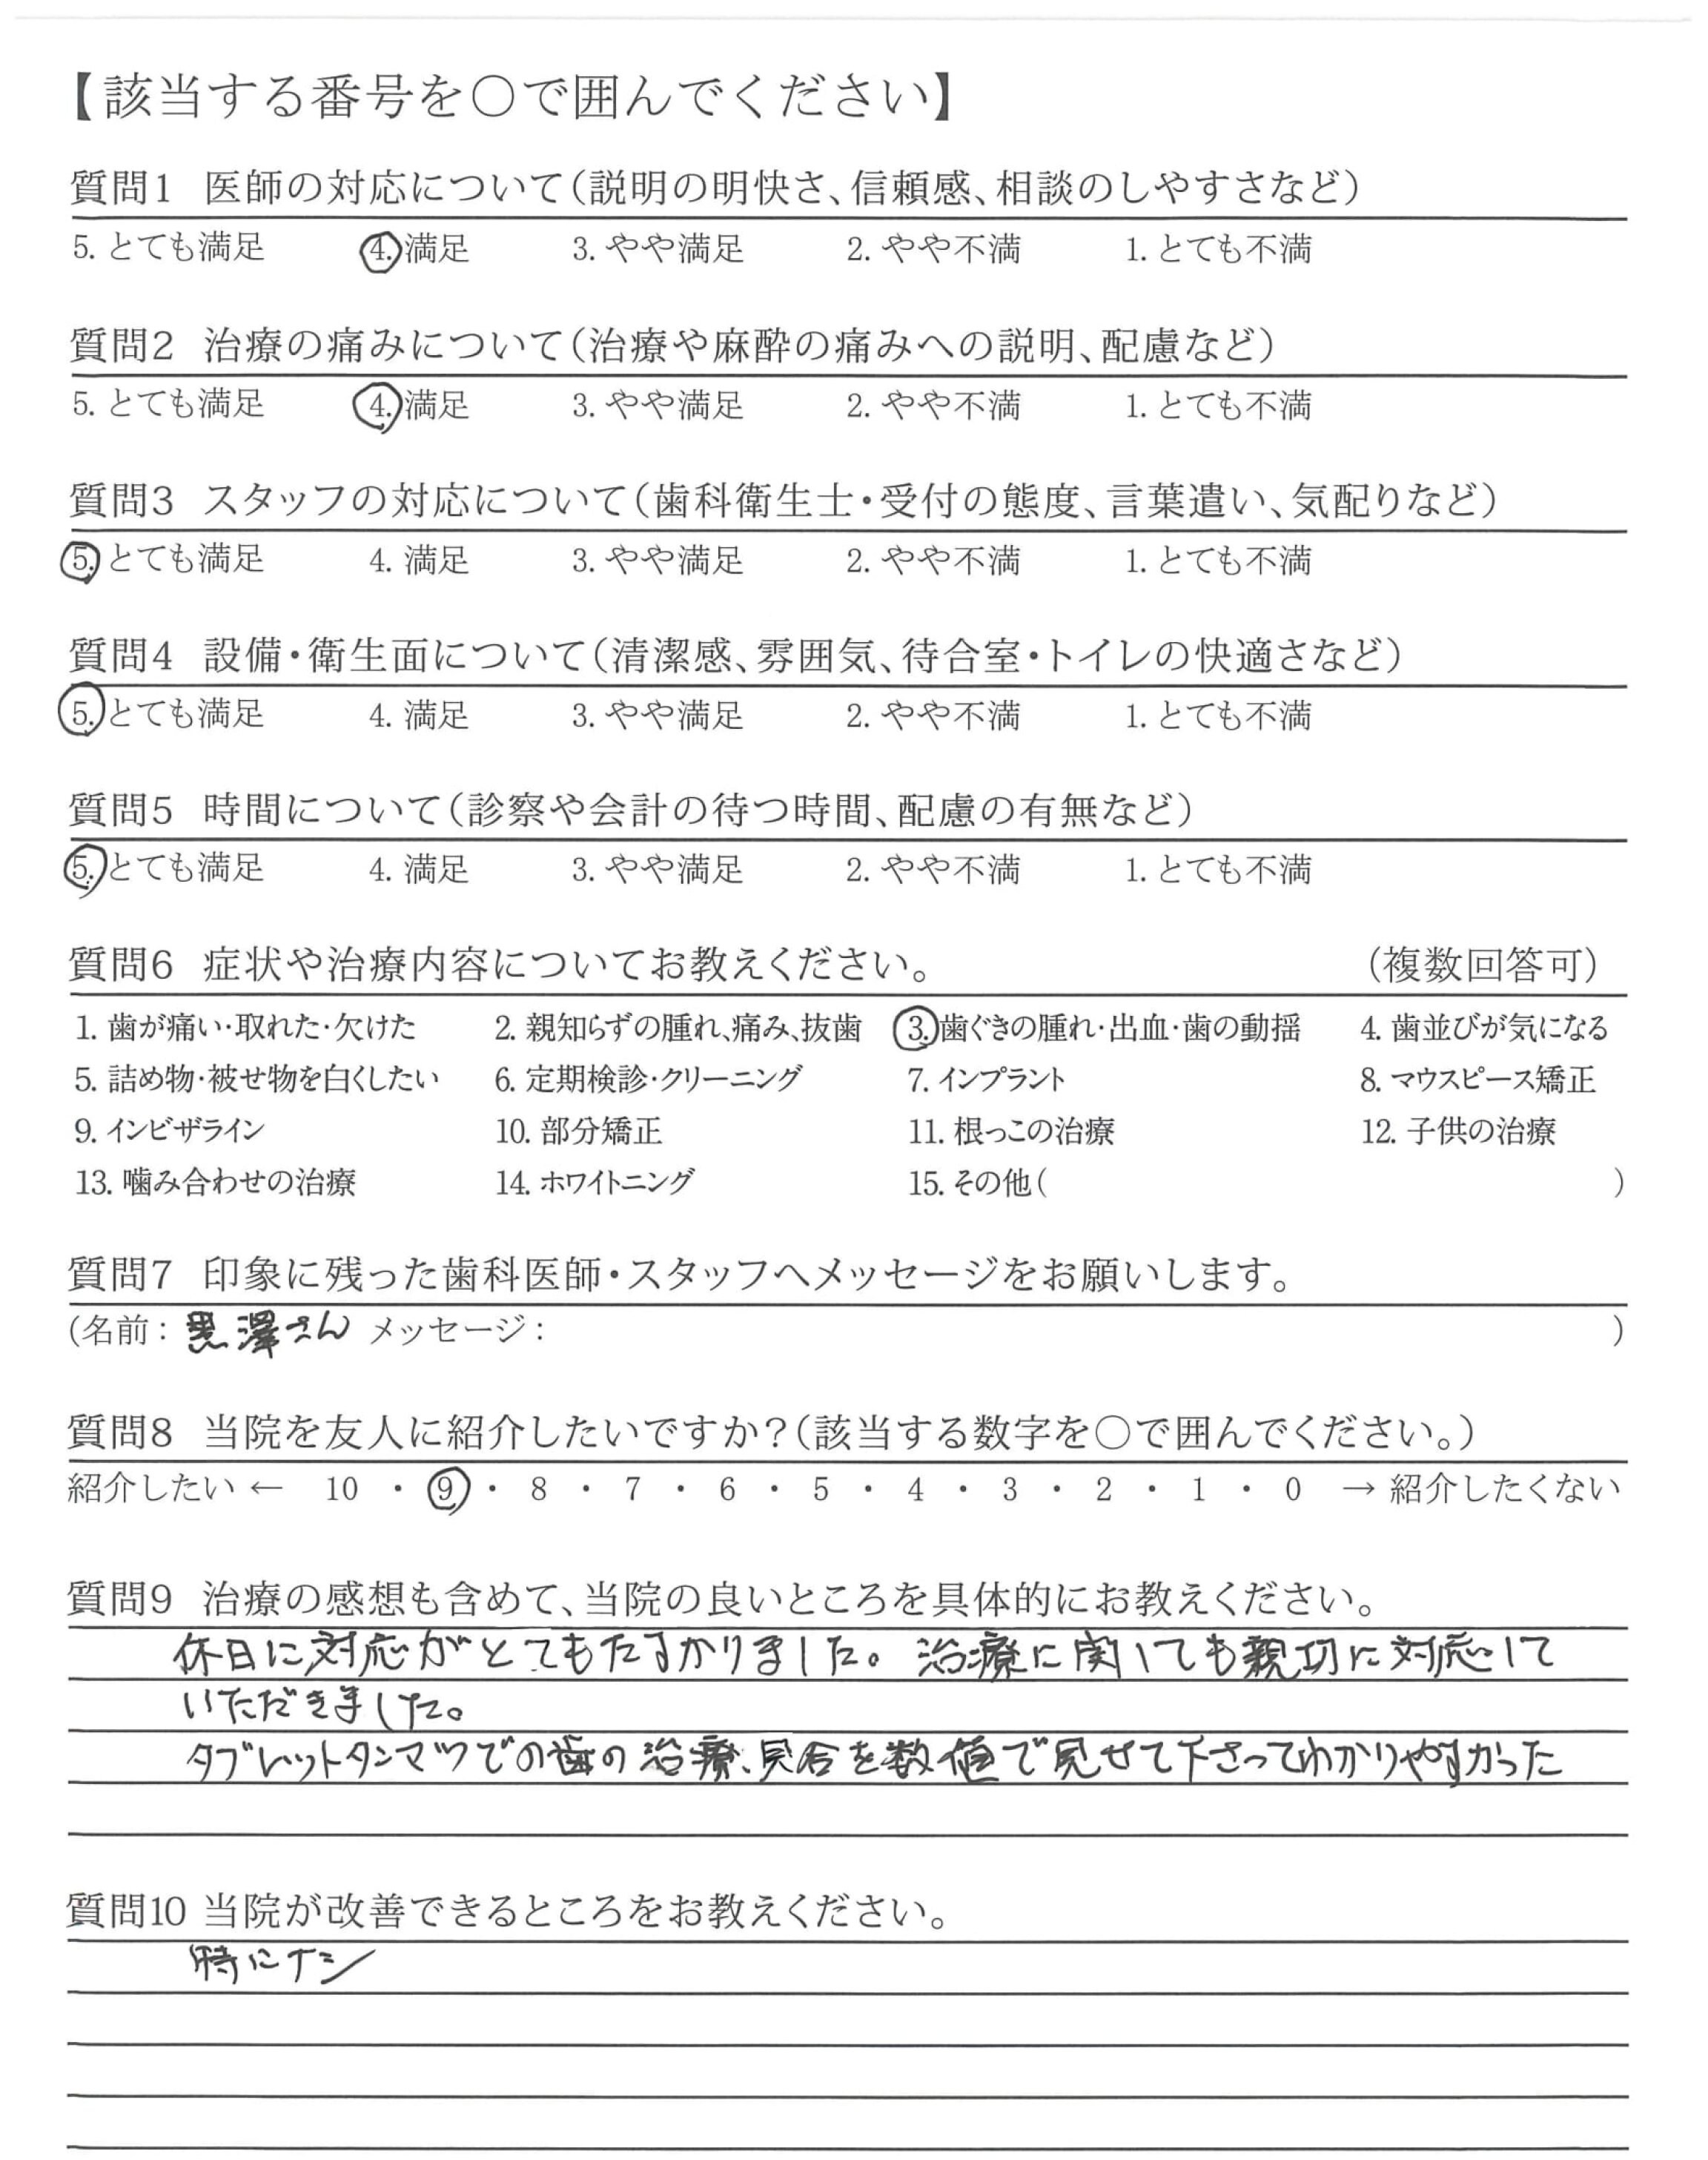 【該当する番号を〇で囲んでください】
質問1 医師の対応について(説明の明快さ、信頼感、相談のしやすさなど)
5. とても満足 4. 満足 3. やや満足 2. やや不満 1. とても不満
質問2 治療の痛みについて(治療や麻酔の痛みへの説明、配慮など)
5. とても満足 4. 満足 3. やや満足 2. やや不満 1. とても不満
質問3 スタッフの対応について(歯科衛生士・受付の態度、言葉遣い、気配りなど)
5. とても満足 4. 満足 3. やや満足 2. やや不満 1. とても不満
質問4 設備・衛生面について(清潔感、雰囲気、待合室・トイレの快適さなど)
5. とても満足 4. 満足 3. やや満足 2. やや不満 1. とても不満
質問5 時間について(診察や会計の待つ時間、配慮の有無など)
5. とても満足 4. 満足 3. やや満足 2. やや不満 1. とても不満
質問6 症状や治療内容についてお教えください。 (複数回答可)
1. 歯が痛い・取れた・欠けた 2. 親知らずの腫れ、痛み、抜歯 3. 歯ぐきの腫れ・出血・歯の動揺 4. 歯並びが気になる
5. 詰め物・被せ物を白くしたい 6. 定期検診・クリーニング 7. インプラント 8. マウスピース矯正
9. インビザライン 10. 部分矯正 11. 根っこの治療 12. 子供の治療
13. 噛み合わせの治療 14. ホワイトニング 15. その他( )
質問7 印象に残った歯科医師・スタッフへメッセージをお願いします。
(名前: 黒澤さん メッセージ: )
質問8 当院を友人に紹介したいですか?(該当する数字を〇で囲んでください。)
紹介したい ← 10 ・ 9 ・ 8 ・ 7 ・ 6 ・ 5 ・ 4 ・ 3 ・ 2 ・ 1 ・ 0 → 紹介したくない
質問9 治療の感想も含めて、当院の良いところを具体的にお教えください。
休日に対応がとてもたすかりました。治療に関しても親切に対応して
いただきました。
タブレットタンマツでの歯の治療、具合を数値で見せて下さってわかりやすかった
質問10 当院が改善できるところをお教えください。
特にナシ